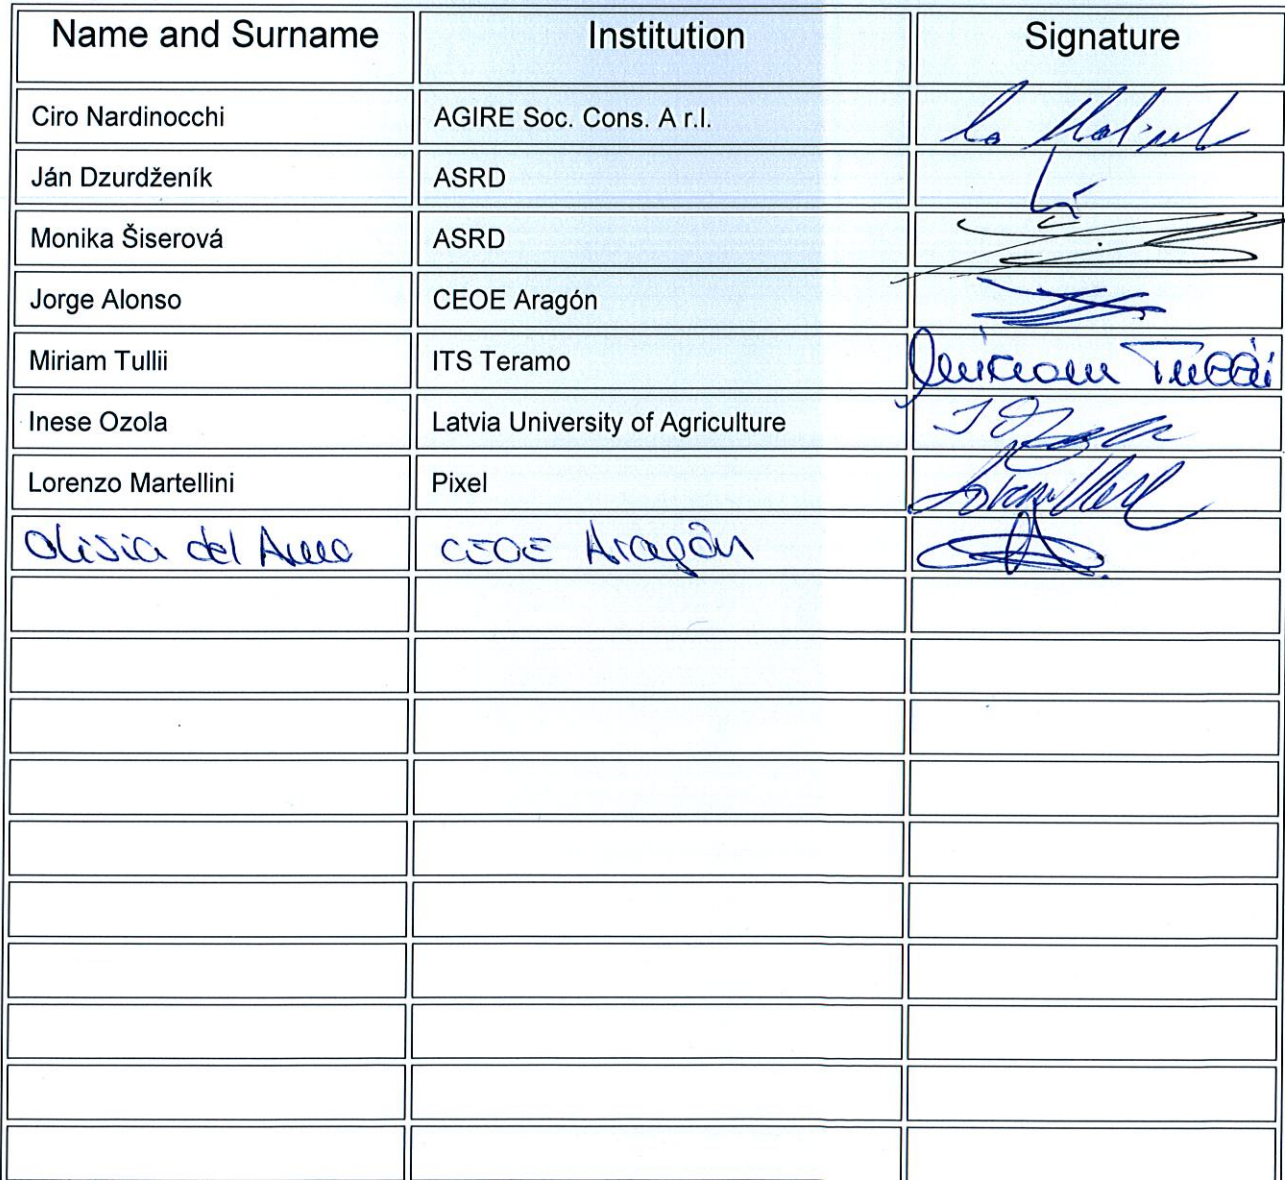 Name and Surname Institution Signature
Ciro Nardinocchi AGIRE Soc. Cons. A r.l.
Ján Dzurdženík ASRD
Monika Šiserová ASRD
Jorge Alonso CEOE Aragón
Miriam Tullii ITS Teramo Miriam Tullii
Inese Ozola Latvia University of Agriculture
Lorenzo Martellini Pixel
del CEOE Aragón